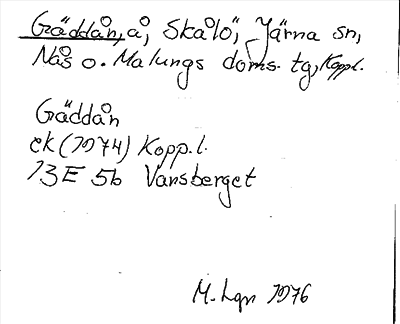 Gäddån, å, Skålö, Järna sn,
Nås o. Malungs doms. tg, Koppl.
Gäddån
ek (1974) Kopp.l.
13E 5b Vansberget
M. Lgn 1976